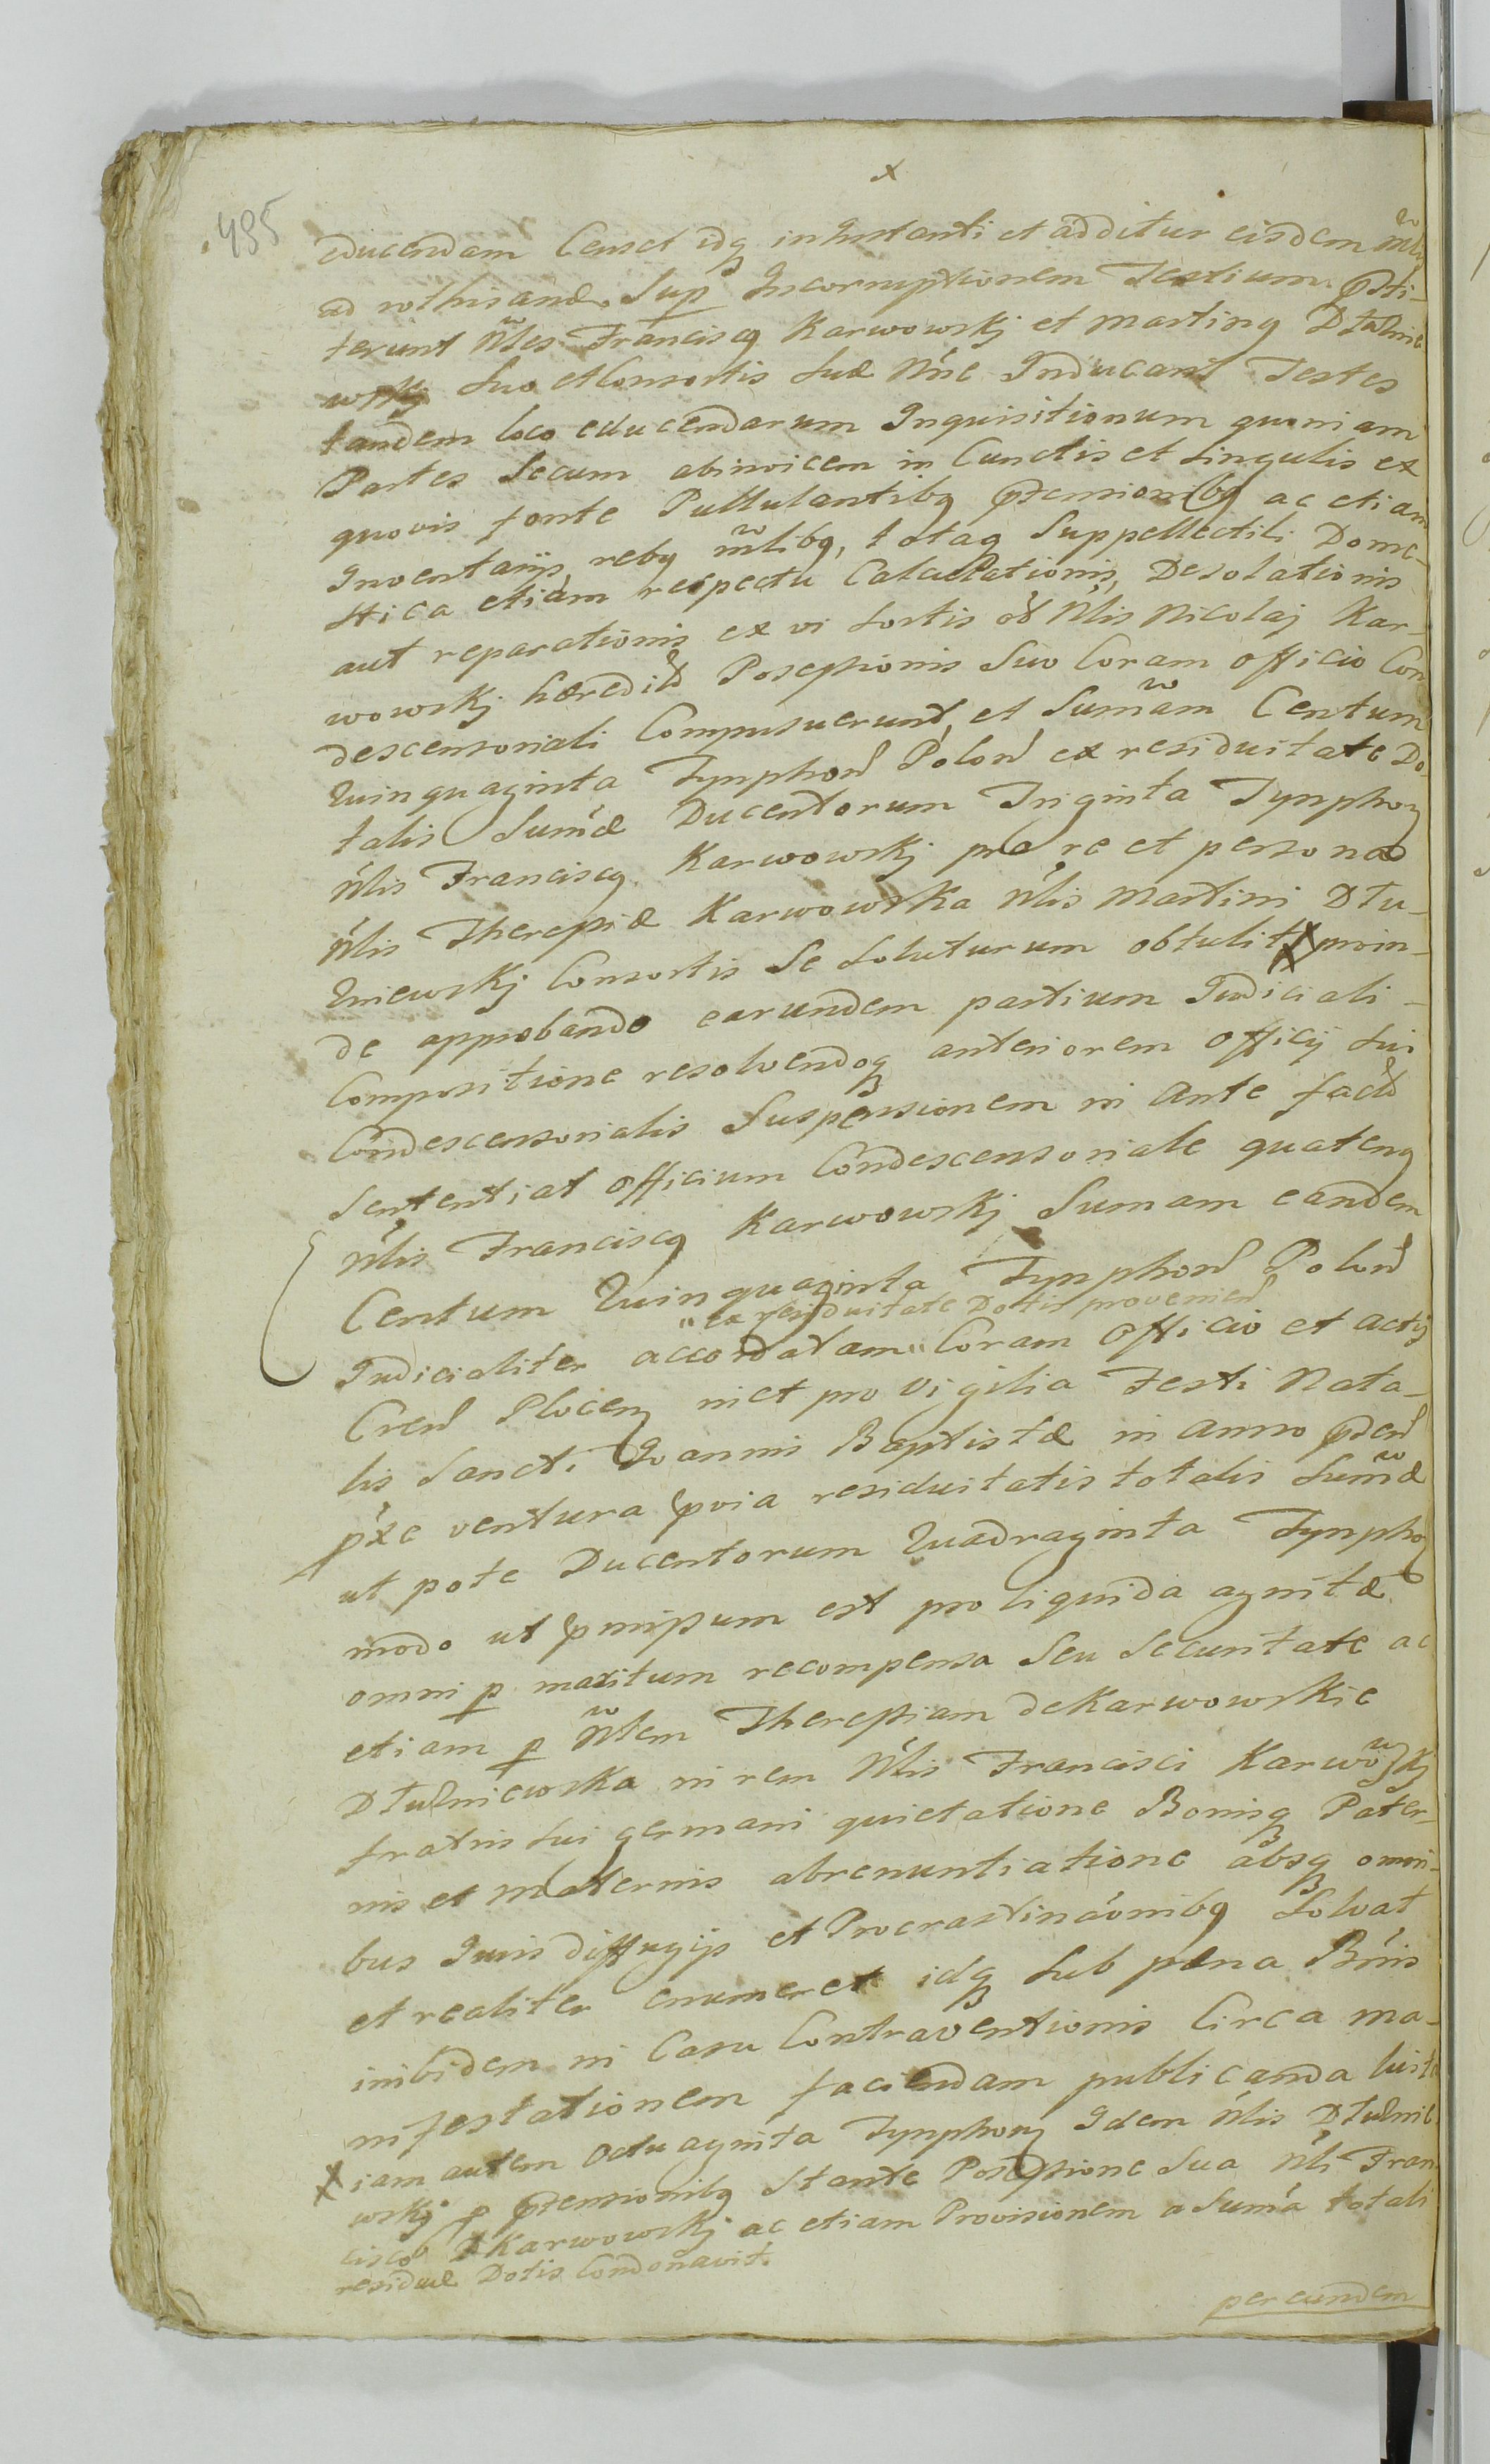 x
495
educendam Censet idq in Instanti et additur eisdem
ad rothisand. Sup Incorruptionem Testium
terunt Nles Franciscq Karwowskj et Martinq Dłużnie
wskj Suo et Consortis Suæ Nne Inducant Testes
tandem loco educendarum Inquisitionum quoniam
Partes Secum abinvicem in Cunctis et Singulis ex
quovis fonte Pullulantibq ptensionibq ac etiam
Inventarijs rebq mlibq, totaq Suppellectili Dome-
stica etiam respectu Calculationis, Desolationis
aut reparationis ex vi Sortis ol Nlis Nicolaj Kar-
wowskj hæredit Possessionis Suo Coram officio Con
descensoriali Composuerunt, et Sumam Centum
Quinquaginta Tynphon Polon ex residuitate Do-
talis Sumæ Ducentorum Triginta Tynphoꝝ
Nlis Franciscq Karwowskj pro re et persona
Nlis Theressiæ Karwowska Nlis Martini Dłu-
żniewskj Consortis Se Soluturum obtulit X proin-
de approbando earundem partium Judiciali-
Compositione resolvendoq anteriorem officij Sui
Condescensorialis Suspensionem in ante fact
Sententiat officium Condescensoriale quatenq
Nlis Franciscq Karwowskj Sumam eandem
Centum Quinquaginta Tynphon Polon
" ex residuitate Dotis provenien
Judicialiter accordatam " Coram Officio et actis
Cren Plocen niet pro Vigilia Festi Nata-
lis Sancti Joannis Baptistæ in Anno pden
pxe ventura pvia residuitatis totalis Sumæ
ut pote Ducentorum Quadraginta Tynphoꝝ
modo ut pmissum est pro liquida agnitæ
omni p maritum recompensa Seu Securitate ac
etiam p Nlem Theressiam de Karwowskie
Dłużniewska in rem Nlis Francisci Karwowskj
fratris Sui germani quietatione Bonisq Pater-
nis et Maternis abrenuntiatione absq omni-
bus Juris diffugijs et Procrastinaonibq Solvat
et realiter enumeret idq Sub pæna Bnis
inibidem in Casu Contraventionis Circa ma-
nifestationem faciendam publicanda luit
X iam autem Octuaginta Tynphoꝝ Idem Nlis Dłużnie
wskj p ptensionibq Stante Possessione Sua Nli Fran
cisco Karwowskj ac etiam Provisionem a Suma totali
residuæ Dotis Condonavit.
per eundem